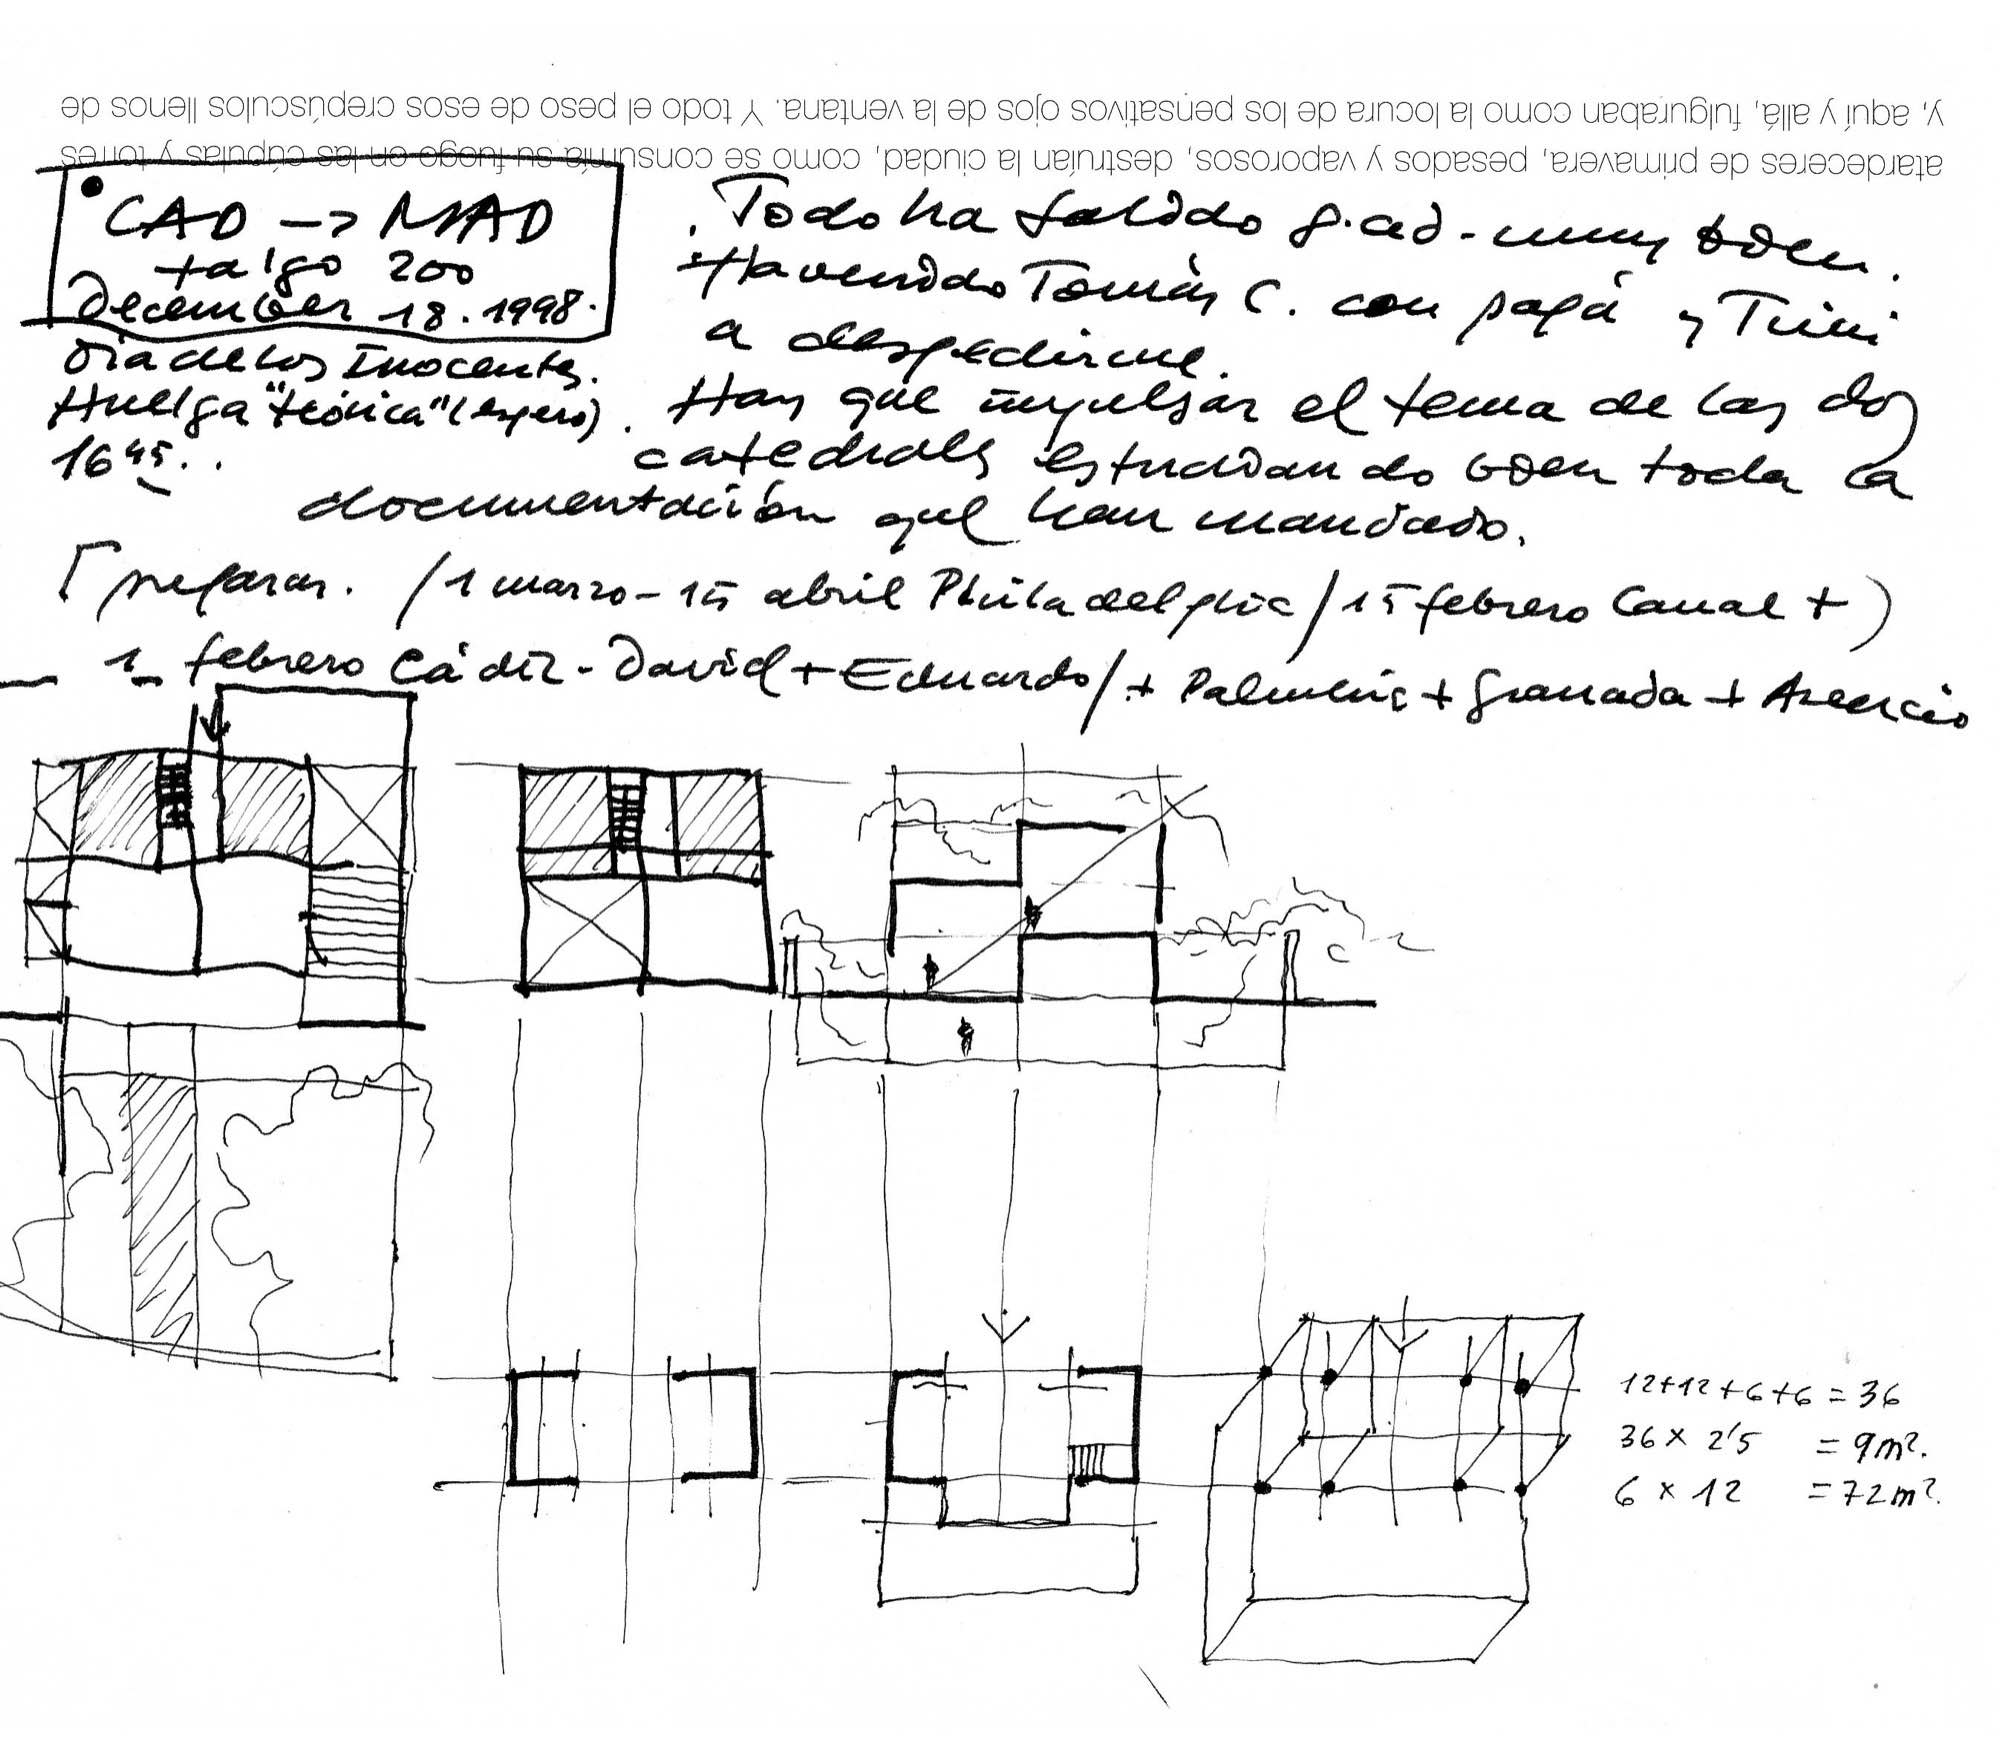 atardeceres de primavera, pesados y vaporosos, destruían la ciudad, como se consumía su fuego en las cúpulas y torres
y, aquí y allá, fulguraban como la locura de los pensativos ojos de la ventana. Y todo el peso de esos crepúsculos llenos de
CAD → MAD
talgo 200
December 18.1998.
Día de los Inocentes.
Huelga "teórica" (espero).
16 45..
. Todo ha salido g.ad. muy bien.
Ha venido Tomás C. con papá y Trini
a despedirme.
. Hay que impulsar el tema de las dos
catedrales estudiando bien toda la
documentación que han mandado.
preparar. / 1 marzo - 15 abril Philadelphia / 15 febrero Canal +)
1 febrero Cádiz - David + Eduardo / + + Granada + Asencio
12+12+6+6 = 36
36 x 2'5 = 9m².
6 x 12 = 72m².